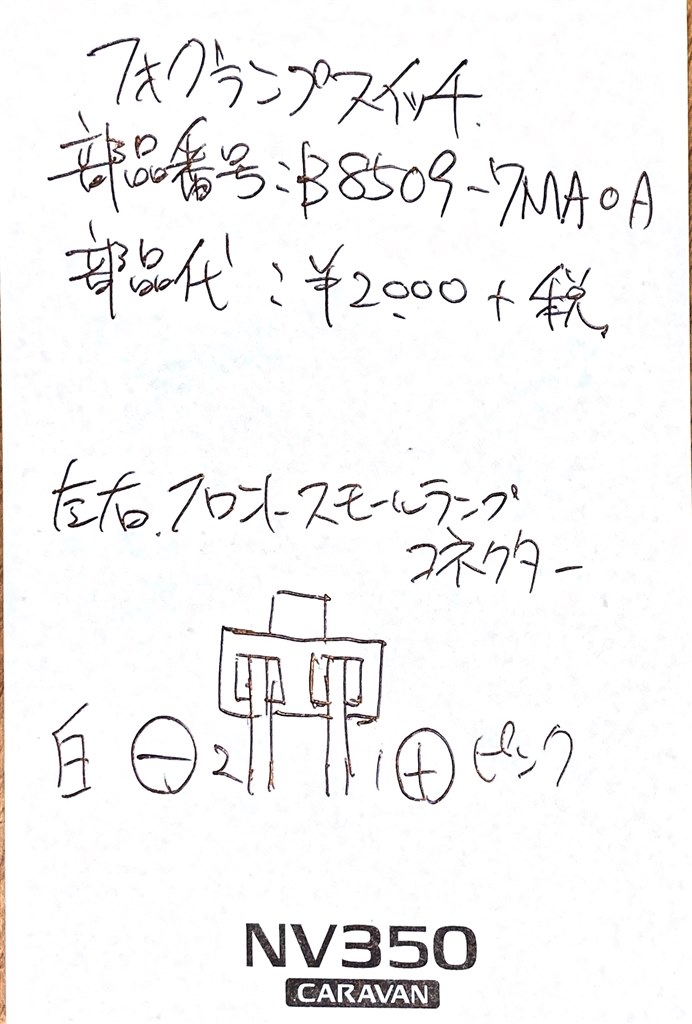 フォグランプスイッチ
部品番号:B8509-7MA0A
部品代:¥2000+税
左右.フロントスモールランプ
コネクター
白 ⊖ 2 1 ⊕ ピンク
NV350
CARAVAN